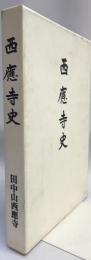 西應寺史
西應寺史
田中山西應寺